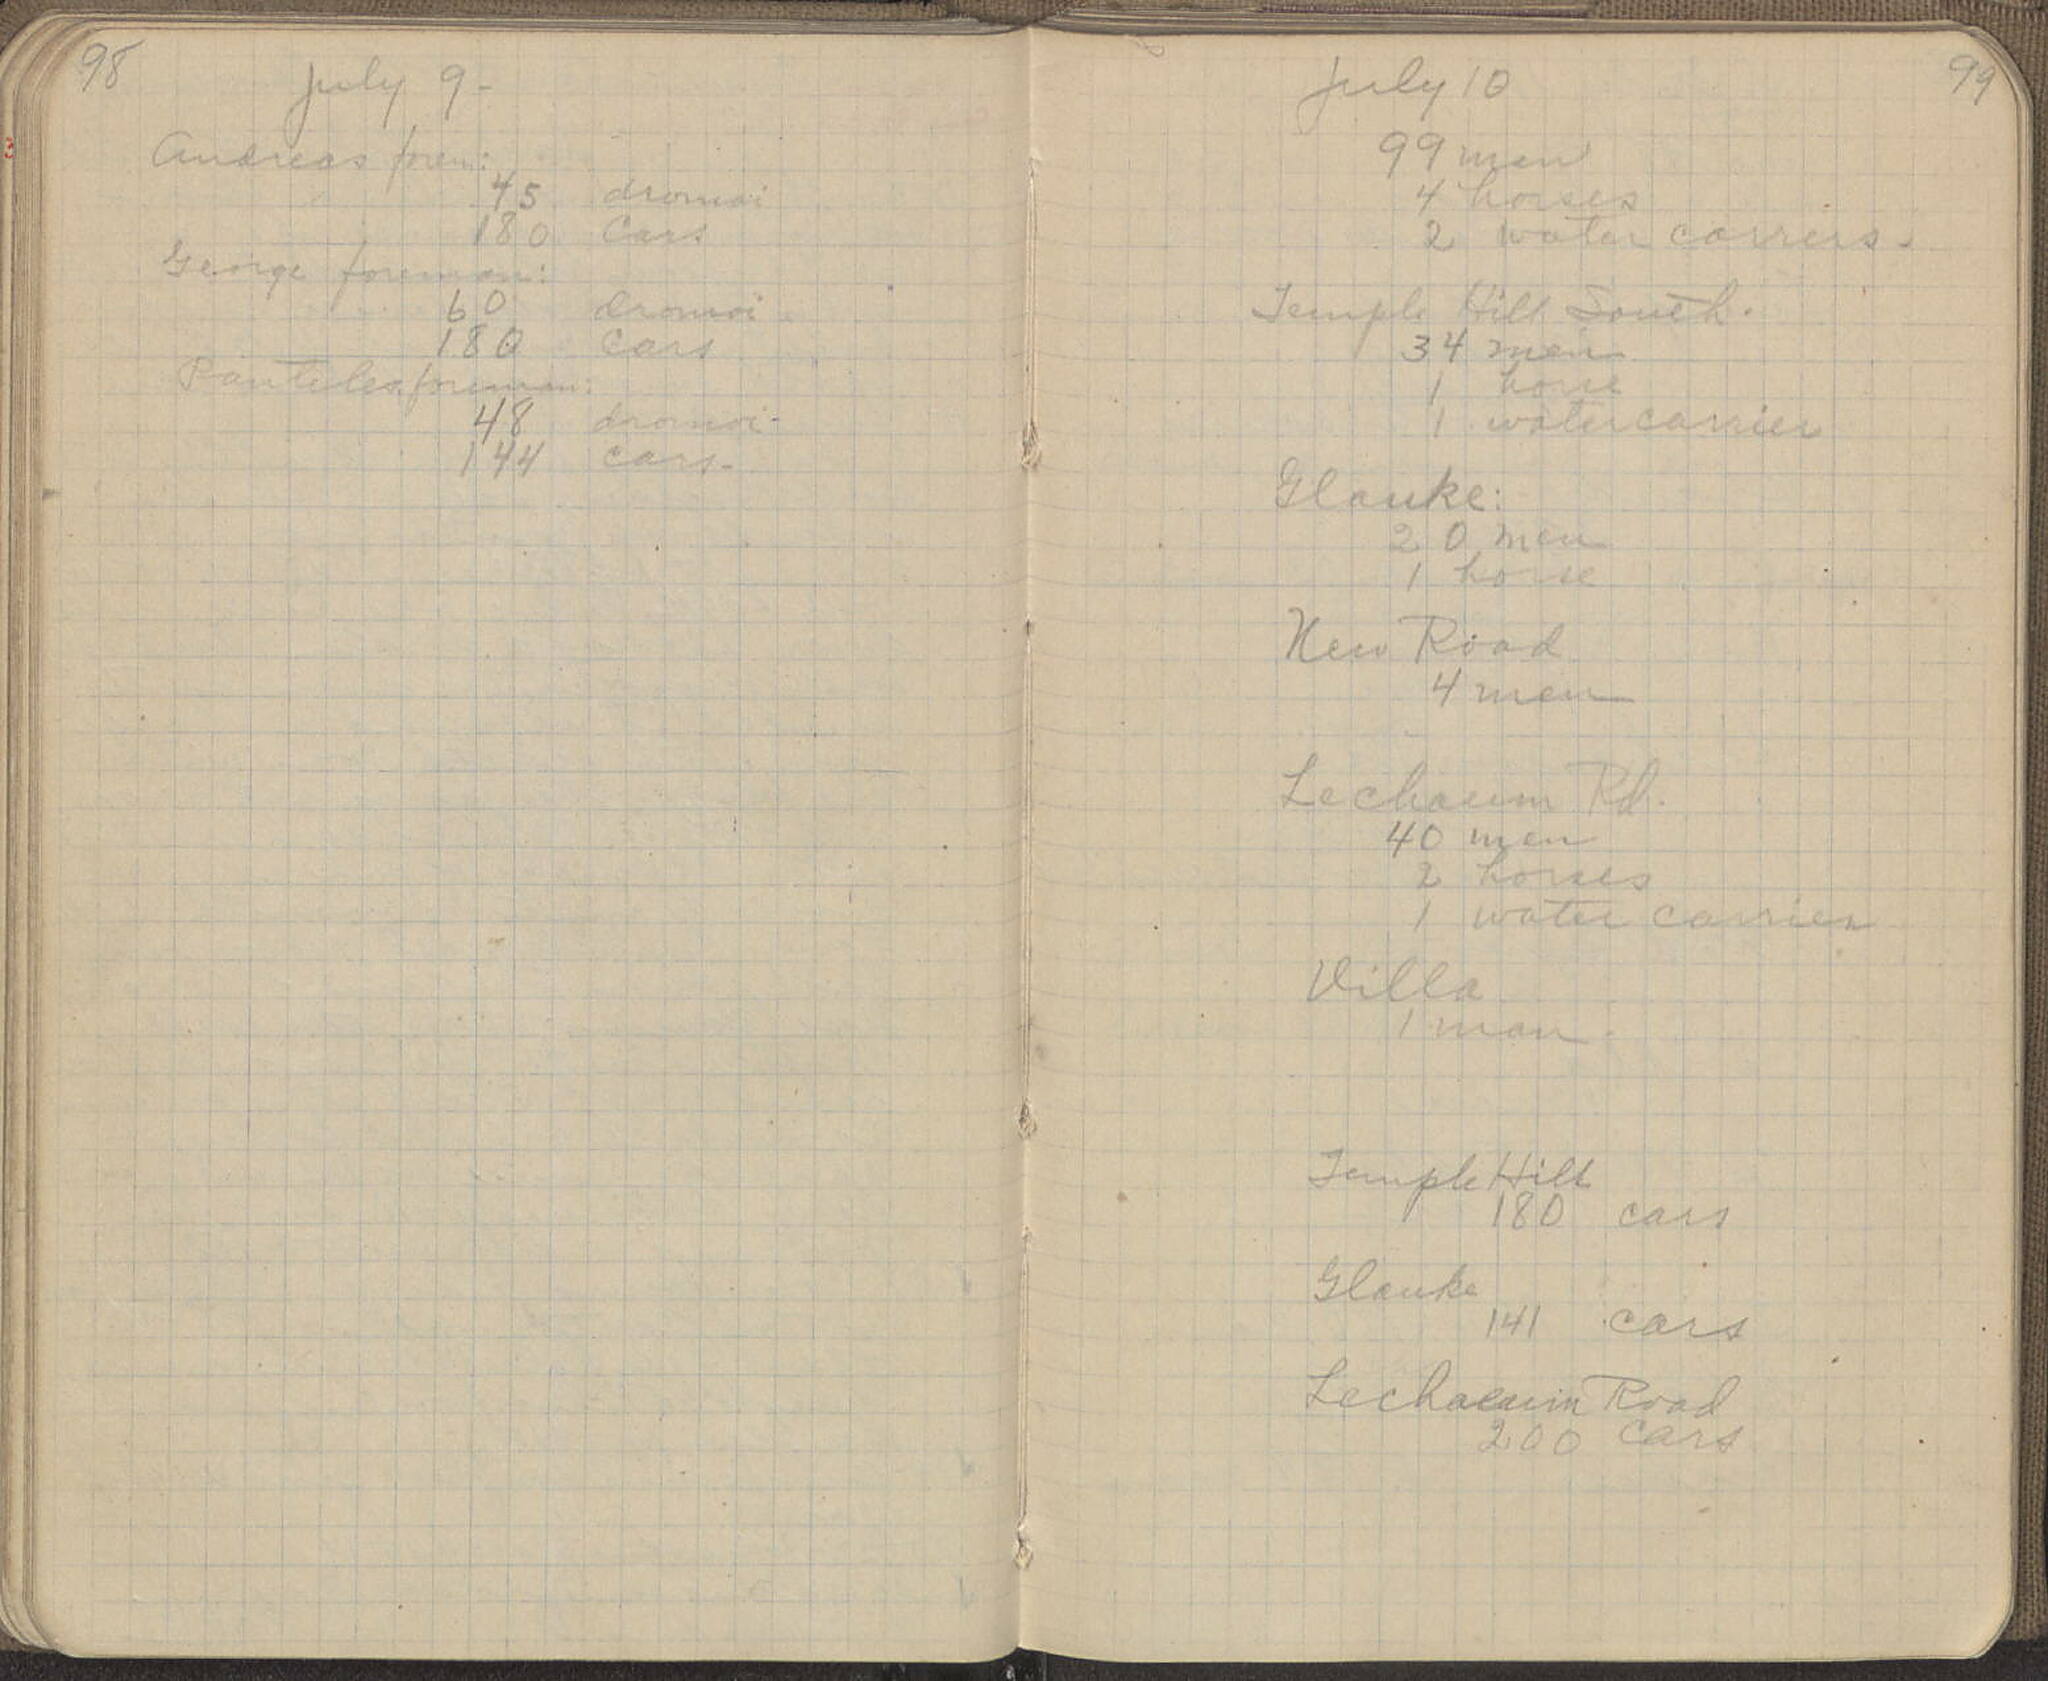 98
July 9-
Andreas forem:
45 dromoi
180 Cars
George foreman:
60 dromoi
180 Cars
Panteles foreman:
48 dromoi-
144 cars-
99
July 10
99 men
4 horses
2 water carriers-
Temple Hill South.
34 men
1 horse
1 watercarrier
Glauke:
20 men
1 horse
New Road
4 men
Lechaeum Rd.
40 men
2 horses
1 water carrier
Villa
1 man.
Temple Hill
180 cars
Glauke
141 cars
Lechaeum Road
200 cars